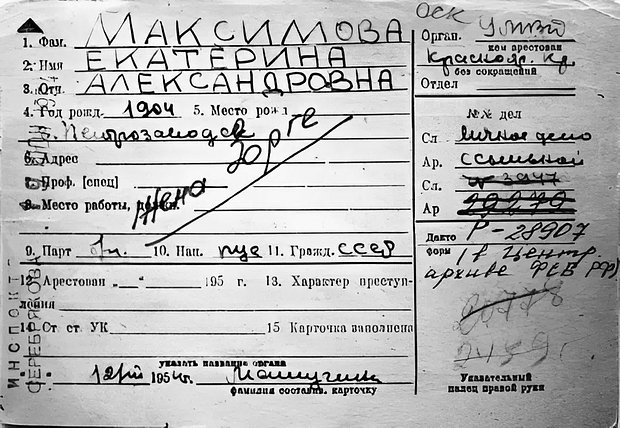 1. Фам. МАКСИМОВА
2. Имя ЕКАТЕРИНА
3. Отч. АЛЕКСАНДРОВНА
4. Год рожд. 1904 5. Место рожд.
г. Петрозаводск
6. Адрес
7. Проф. [спец]
8. Место работы, должн.
Жена Зорге
9. Парт б/п. 10. Нац. рус 11. Гражд. СССР
12. Арестован „__“ 195 г. 13. Характер преступ-
ления
14. От ст УК 15 Карточка заполнена
указать название органа
12/VIII 1954 г.
фамилия составив. карточку
ИНСПЕКТ.
СЕРЕБРЯКОВА
ОСК
Орган. УМВД
кем арестован
Краснояр. кр.
без сокращений
Отдел
№№ дел
Сл личное дело
Ар. ссыльной
Сл. № 3947
Ар 29279
Дакто Р-28907
форм (в Центр.
архиве ФСБ РФ)
Указательный
палец правой руки